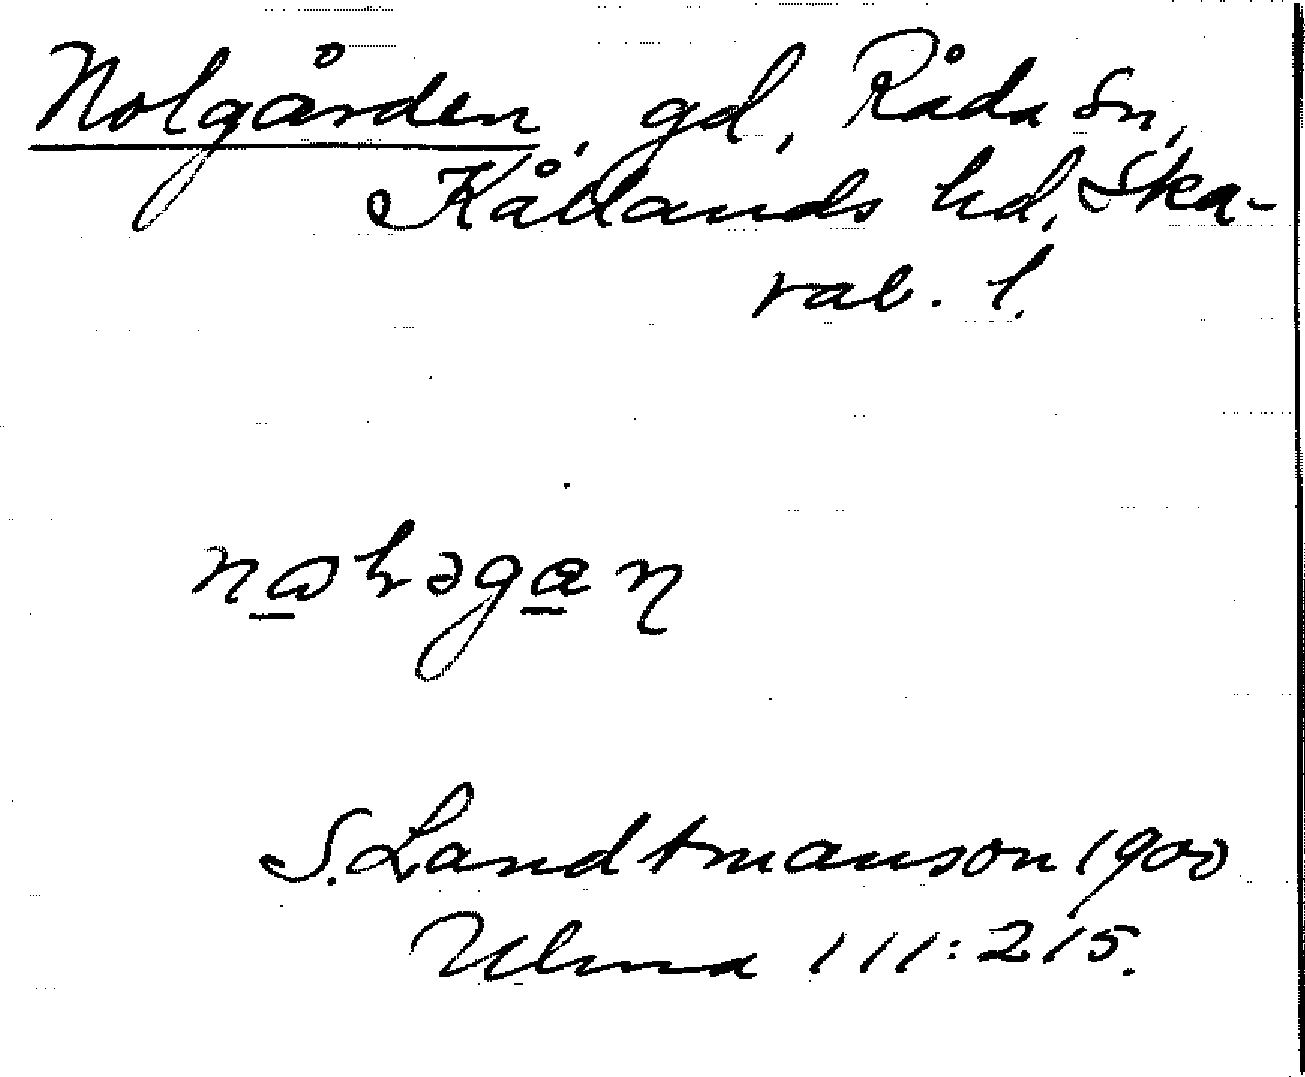 Nolgården, gd, Råda sn,
Kållands hd, Ska-
rab. l.
S. Landtmanson 1900
Ulma 111:215.